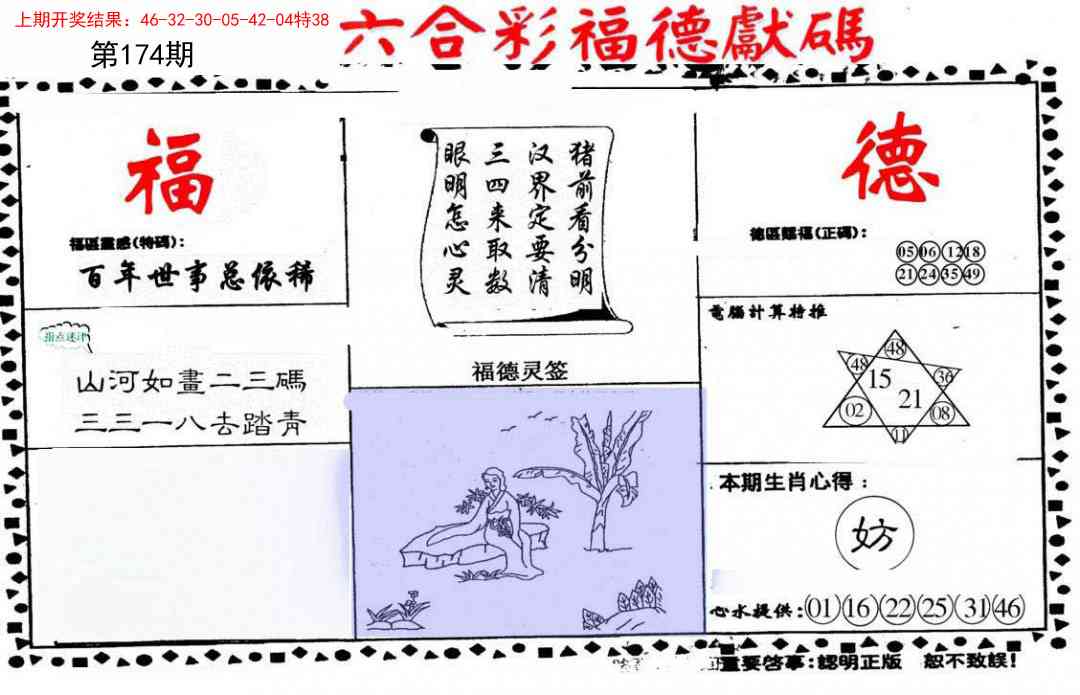 上期开奖结果：46-32-30-05-42-04特38
第174期
六合彩福德獻碼
福
福區靈感(特碼)：
百年世事总依稀
指点迷津
山河如畫二三碼
三三一八去踏青
猪前看分明
汉界定要清
三四来取数
眼明怎心灵
福德灵签
德
德區賜福(正碼)：
05 06 12 18
21 24 35 49
電腦計算特推
48
48
36
15
21
02
08
11
本期生肖心得：
妨
心水提供:(01)(16)(22)(25)(31)(46)
重要啓事:認明正版 恕不致誤!